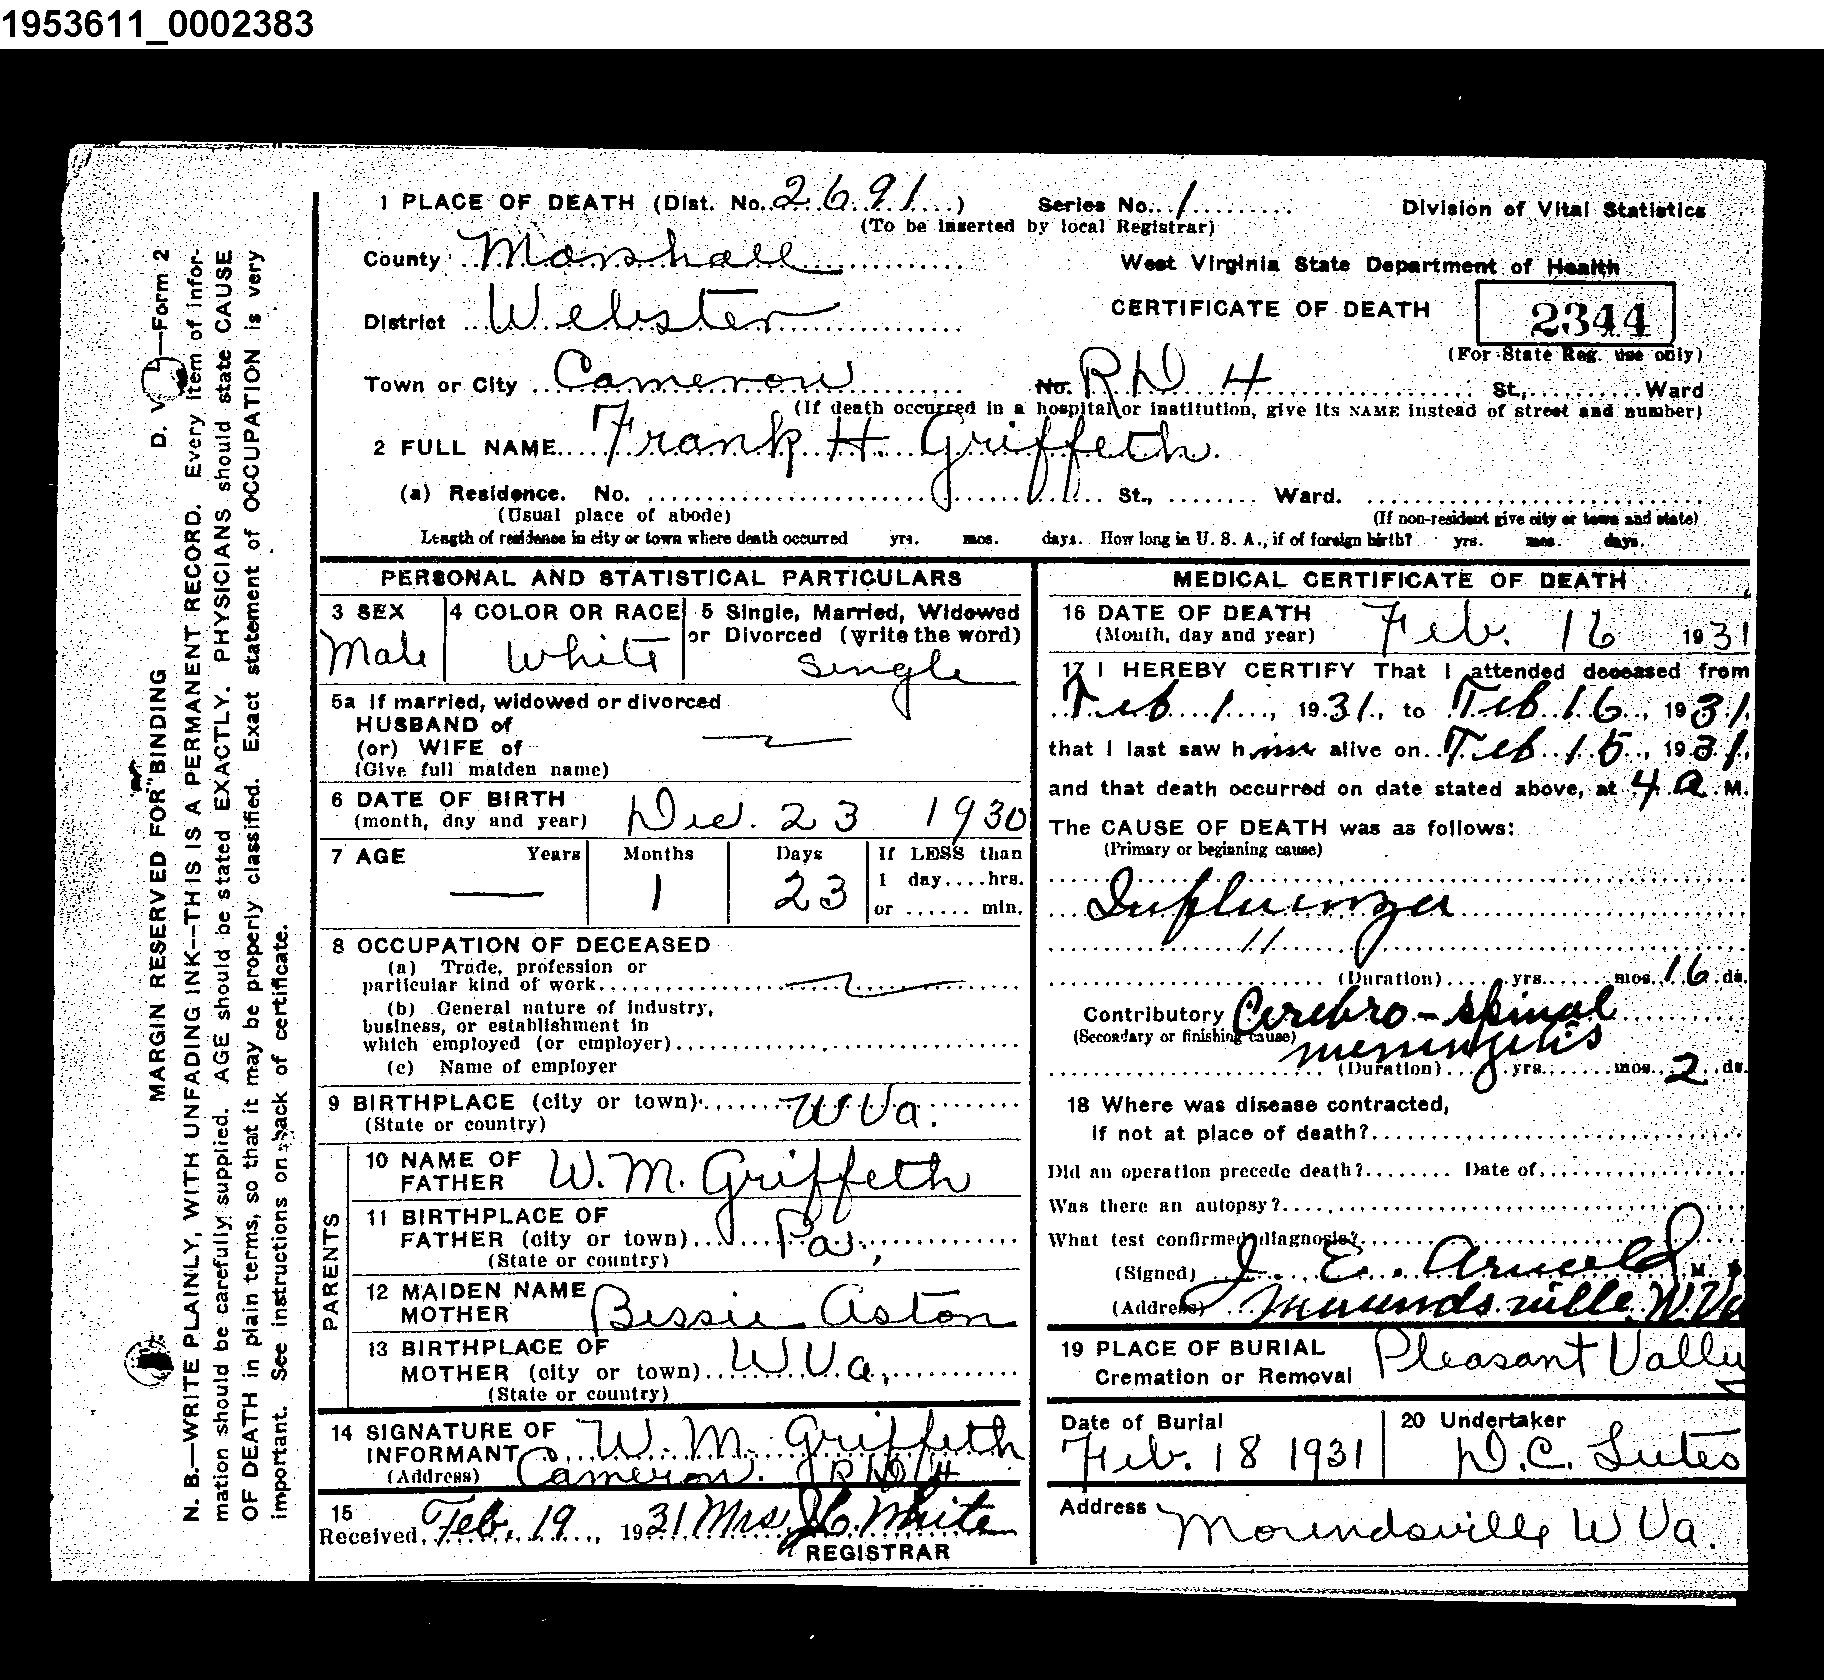 1953611_0002383
1 PLACE OF DEATH (Dist. No. 2691) Series No. 1 Division of Vital Statistics
(To be inserted by local Registrar)
County Marshall West Virginia State Department of Health
District Webster CERTIFICATE OF DEATH 2344
(For State Reg. use only)
Town or City Cameron No. RD 4 St., Ward
(If death occurred in a hospital or institution, give its NAME instead of street and number)
2 FULL NAME Frank H. Griffeth
(a) Residence. No. St., Ward.
(Usual place of abode) (If non-resident give city or town and state)
Length of residence in city or town where death occurred yrs. mos. days. How long in U. S. A., if of foreign birth? yrs. mos. days.
PERSONAL AND STATISTICAL PARTICULARS
3 SEX 4 COLOR OR RACE 5 Single, Married, Widowed
or Divorced (write the word)
Male White Single
5a If married, widowed or divorced
HUSBAND of
(or) WIFE of
(Give full maiden name)
6 DATE OF BIRTH
(month, day and year) Dec. 23 1930
7 AGE Years Months Days If LESS than
— 1 23 1 day....hrs.
or ...... min.
8 OCCUPATION OF DECEASED
(a) Trade, profession or
particular kind of work
(b) General nature of industry,
business, or establishment in
which employed (or employer)
(c) Name of employer
9 BIRTHPLACE (city or town) W Va.
(State or country)
PARENTS
10 NAME OF
FATHER W. M. Griffeth
11 BIRTHPLACE OF
FATHER (city or town) Pa.,
(State or country)
12 MAIDEN NAME
MOTHER Bessie Aston
13 BIRTHPLACE OF
MOTHER (city or town) W Va.,
(State or country)
14 SIGNATURE OF
INFORMANT W. M. Griffeth
(Address) Cameron. RD 4
15
Received, Feb. 19, 1931 Mrs J C. White
REGISTRAR
MEDICAL CERTIFICATE OF DEATH
16 DATE OF DEATH
(Month, day and year) Feb. 16 1931
17 I HEREBY CERTIFY That I attended deceased from
Feb 1, 1931, to Feb 16, 1931,
that I last saw him alive on Feb 15, 1931,
and that death occurred on date stated above, at 4 a. M.
The CAUSE OF DEATH was as follows:
(Primary or beginning cause)
Influenza
11
(Duration) yrs. mos. 16 ds.
Contributory Cerebro-spinal
(Secondary or finishing cause) meningitis
(Duration) yrs. mos. 2 ds.
18 Where was disease contracted,
if not at place of death?
Did an operation precede death? Date of
Was there an autopsy?
What test confirmed diagnosis?
(Signed) J. E. Arnold, M. D.
(Address) Moundsville, W. Va
19 PLACE OF BURIAL
Cremation or Removal Pleasant Valley
Date of Burial 20 Undertaker
Feb. 18 1931 D. C. Lutes
Address Moundsville W Va.
MARGIN RESERVED FOR BINDING D. V. —Form 2
N. B.—WRITE PLAINLY, WITH UNFADING INK—THIS IS A PERMANENT RECORD. Every item of infor-
mation should be carefully supplied. AGE should be stated EXACTLY. PHYSICIANS should state CAUSE
OF DEATH in plain terms, so that it may be properly classified. Exact statement of OCCUPATION is very
important. See instructions on back of certificate.